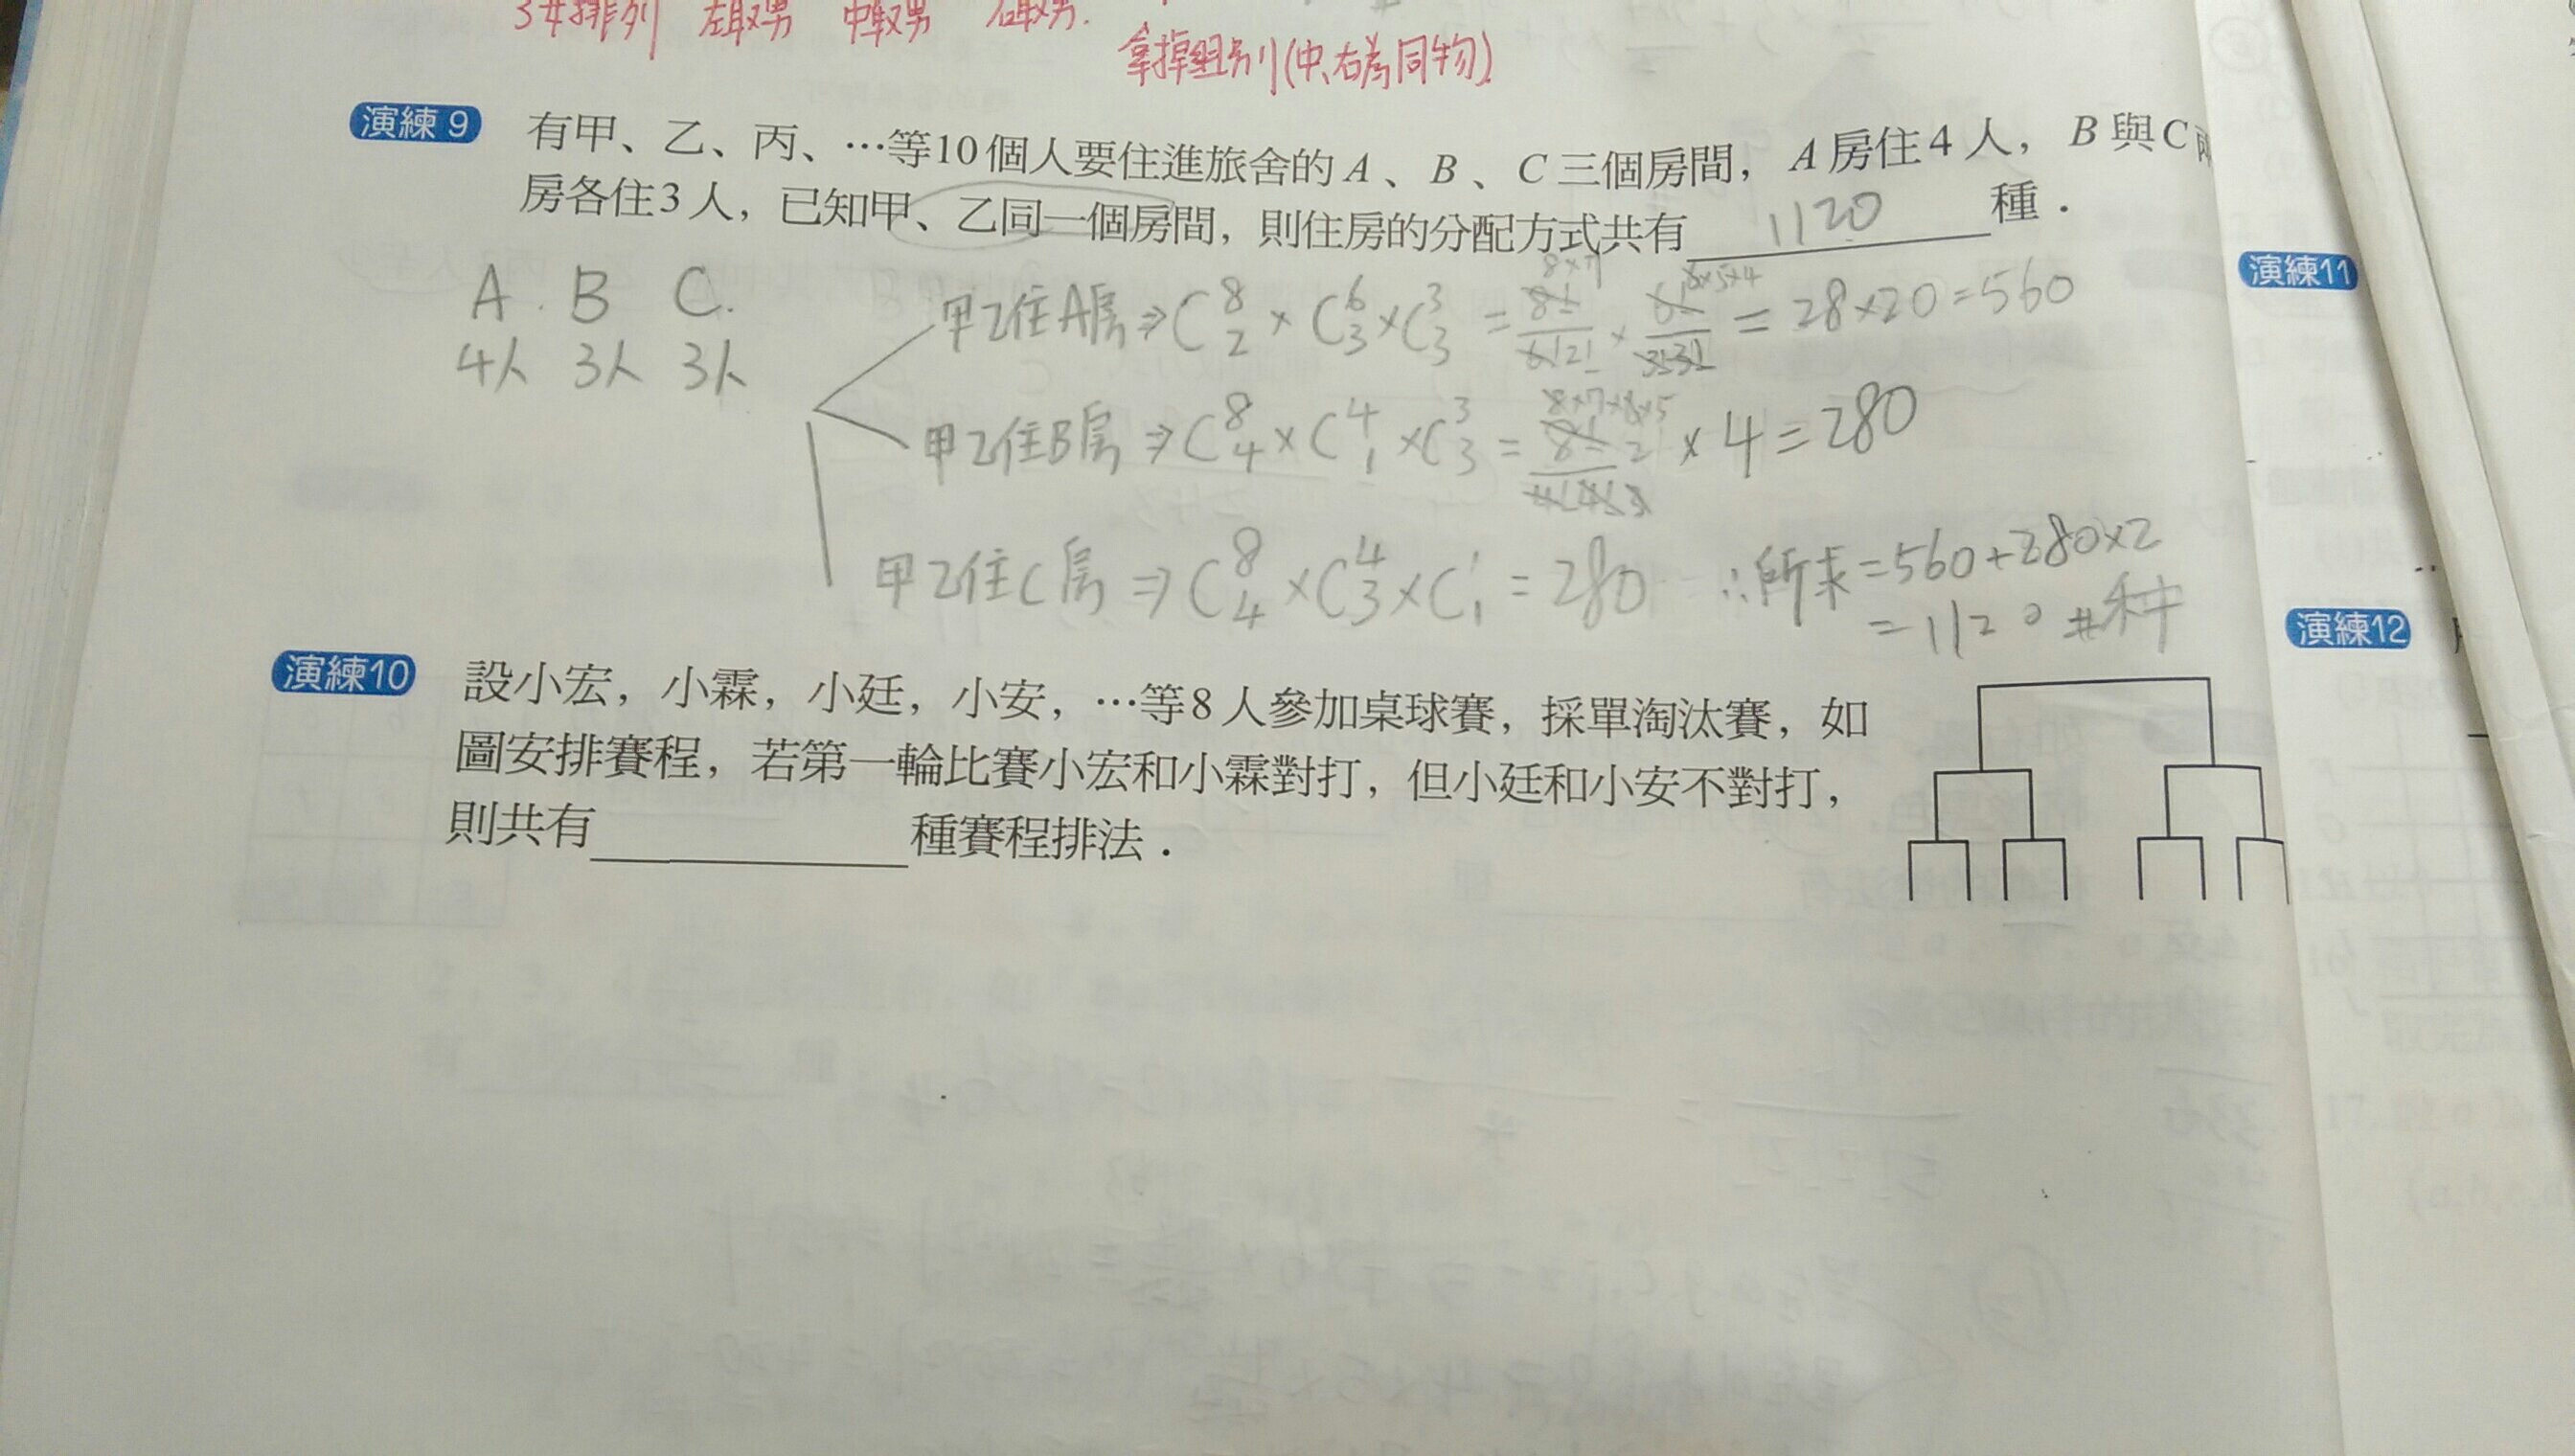 3女排列 左取男 中取男 右取男.
拿掉組別(中、右為同物)
演練9 有甲、乙、丙、…等10個人要住進旅舍的A、B、C三個房間，A房住4人，B與C兩
房各住3人，已知甲、乙同一個房間，則住房的分配方式共有 1120 種．
A. B C.
4人 3人 3人
甲乙住A房⇒C⁸₂×C⁶₃×C³₃=8!/6!2!×6!/3!3!=28×20=560
8×7 6×5×4
甲乙住B房⇒C⁸₄×C⁴₁×C³₃= 8! ×4=280
8×7×6×5
甲乙住C房⇒C⁸₄×C⁴₃×C¹₁=280
∴所求=560+280×2
=1120 #種
演練10 設小宏，小霖，小廷，小安，…等8人參加桌球賽，採單淘汰賽，如
圖安排賽程，若第一輪比賽小宏和小霖對打，但小廷和小安不對打，
則共有 種賽程排法．
演練11
演練12